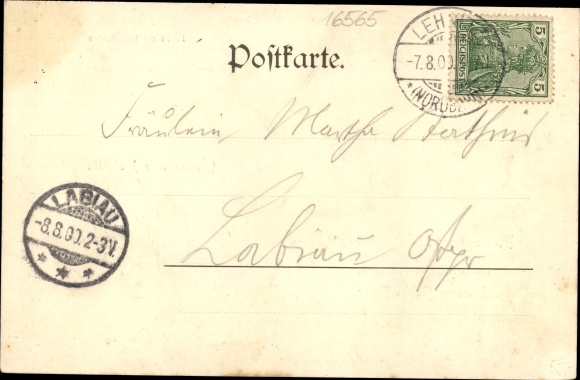 16565
Postkarte.
LEH
-7.8.00.
*(NORDB
REICHSPOST
5
5
Fräulein Martha
Labiau Ostpr
LABIAU
-8.8.00.2-3V.
* * *